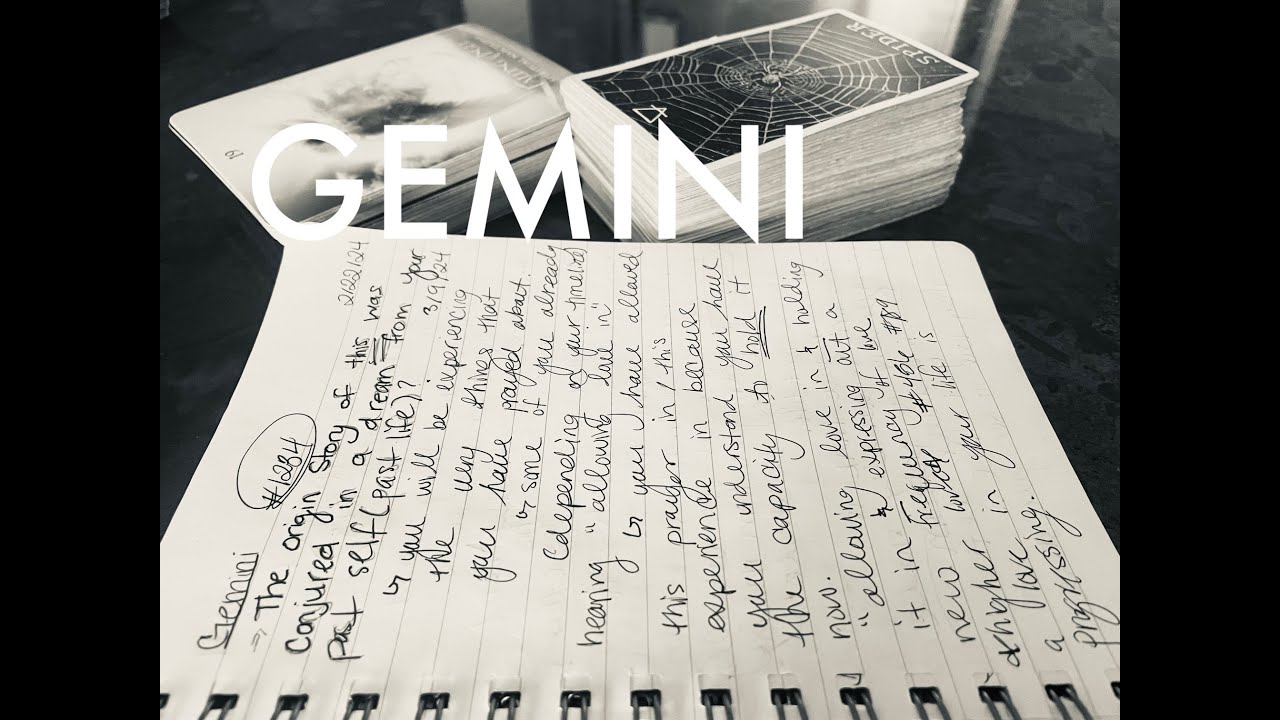 GEMINI
SPIDER
19
Gemini
#1284
2/22/24
→ The origin story of this was
conjured in a dream from your
past self (past life)? 3/9/24
↳ you will be experiencing
the very things that
you have prayed about.
↳ some of you already
(depending on your timeline)
hearing "allowing love in"
↳ you have allowed
this prayer in / this
experience in because
you understand you have
the capacity to hold it
now.
"allowing love in & holding
& expressing out a
it in frequency of love
new #456 #789
& higher in your life is
a love
progressing.